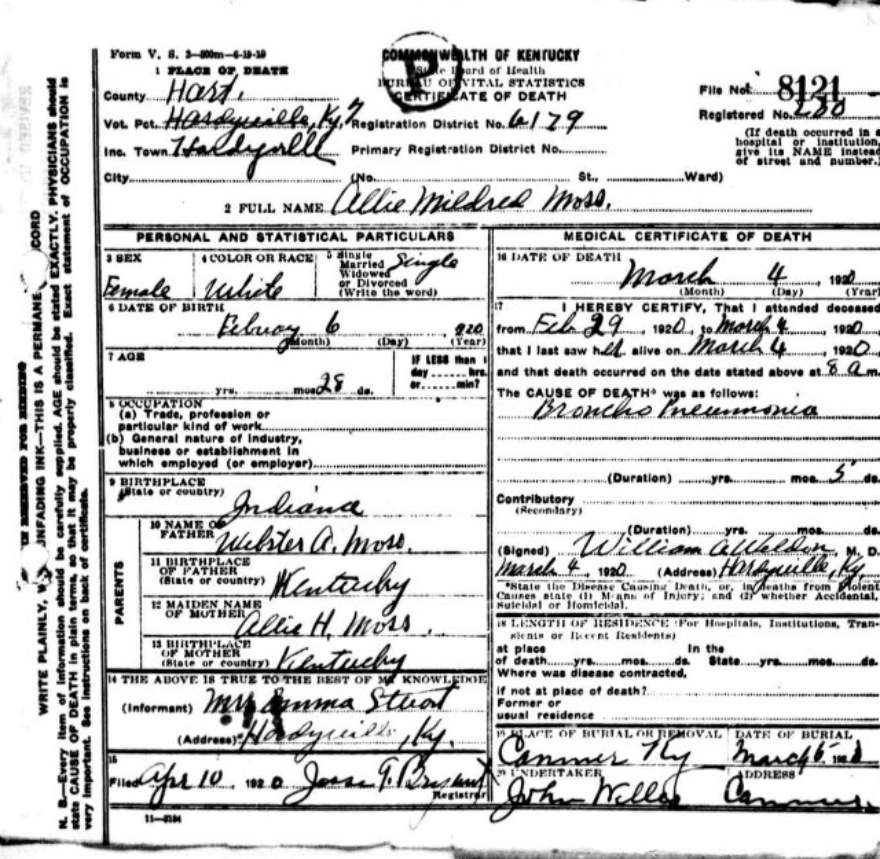 Form V. S. 3—500m—6-19-19
COMMONWEALTH OF KENTUCKY
State Board of Health
BUREAU OF VITAL STATISTICS
CERTIFICATE OF DEATH
P
1 PLACE OF DEATH
County Hart.
Vot. Pct. Hardyville, Ky.
Inc. Town Hardyvill
City
(No. St., Ward)
Registration District No. 6179
Primary Registration District No.
File No. 8121
Registered No.
(If death occurred in a
hospital or institution,
give its NAME instead
of street and number.)
2 FULL NAME Allie Mildred Moss.
PERSONAL AND STATISTICAL PARTICULARS
3 SEX
Female
4 COLOR OR RACE
White
5 Single
Married
Widowed
or Divorced
(Write the word)
Single
6 DATE OF BIRTH
Febuary 6 , 920
(Month) (Day) (Year)
7 AGE
yrs. mos. 28 ds.
IF LESS than 1
day hrs.
or min?
8 OCCUPATION
(a) Trade, profession or
particular kind of work
(b) General nature of industry,
business or establishment in
which employed (or employer)
9 BIRTHPLACE
(State or country)
Indiana
PARENTS
10 NAME OF
FATHER
Webster A. Moss.
11 BIRTHPLACE
OF FATHER
(State or country)
Kentucky
12 MAIDEN NAME
OF MOTHER
Allie H. Moss.
13 BIRTHPLACE
OF MOTHER
(State or country)
Kentucky
14 THE ABOVE IS TRUE TO THE BEST OF MY KNOWLEDGE
(Informant) Mrs Emma Stuart
(Address) Hardyville, Ky.
15
Filed Apr 10 , 1920 Jesse T.
Registrar
11—3184
MEDICAL CERTIFICATE OF DEATH
16 DATE OF DEATH
March 4 , 1920
(Month) (Day) (Year)
17 I HEREBY CERTIFY, That I attended deceased
from Feb 29 , 1920, to March 4 , 1920
that I last saw her alive on March 4 , 1920,
and that death occurred on the date stated above at 8 a m.
The CAUSE OF DEATH* was as follows:
Broncho Pneumonia
(Duration) yrs. mos. 5 ds.
Contributory
(Secondary)
(Duration) yrs. mos. ds.
(Signed) William , M. D.
March 4 , 1920 (Address) Hardyville, Ky.
*State the Disease Causing Death, or, in deaths from Violent
Causes state (1) Means of Injury; and (2) whether Accidental,
Suicidal or Homicidal.
18 LENGTH OF RESIDENCE (For Hospitals, Institutions, Tran-
sients or Recent Residents)
at place In the
of death yrs. mos. ds. State yrs. mos. ds.
Where was disease contracted,
if not at place of death?
Former or
usual residence
19 PLACE OF BURIAL OR REMOVAL
Canmer Ky
DATE OF BURIAL
March 5 192
20 UNDERTAKER
John Willis
ADDRESS
Canmer.
N. B.—Every item of information should be carefully supplied. AGE should be stated EXACTLY. PHYSICIANS should
state CAUSE OF DEATH in plain terms, so that it may be properly classified. Exact statement of OCCUPATION is
very important. See instructions on back of certificate.
WRITE PLAINLY, UNFADING INK—THIS IS A PERMANE CORD
RESERVED FOR BINDING